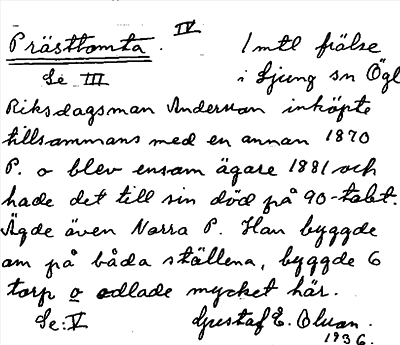 IV
Prästtomta. 1 mtl frälse
Se III i Ljung sn Ögl
Riksdagsman Andersson inköpte
tillsammans med en annan 1870
P. o blev ensam ägare 1881 och
hade det till sin död på 90-talet.
Ägde även Norra P. Han byggde
om på båda ställena, byggde 6
torp o odlade mycket här.
Se: V Gustaf E. Olsson.
1936.